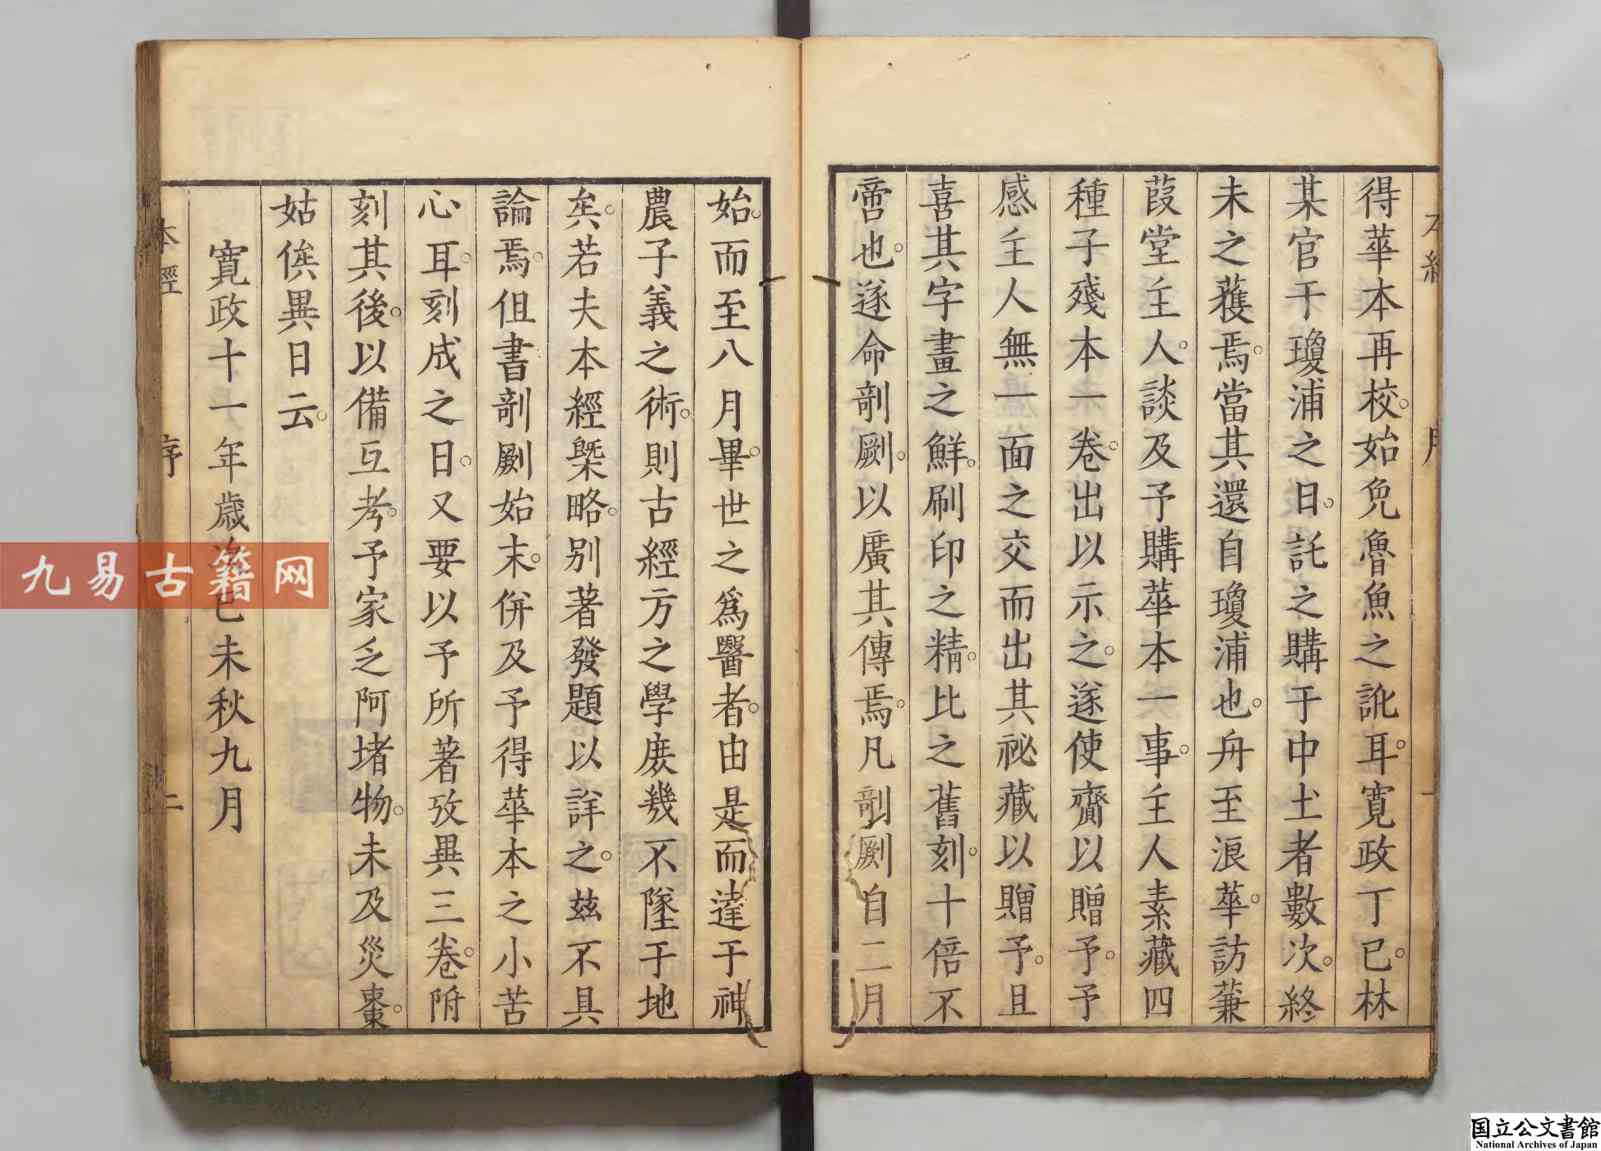 得華本再校始免魯魚之訛耳寛政丁巳林
某官于瓊浦之日託之購于中土者數次終
未之獲焉當其還自瓊浦也舟至浪華訪蒹
葭堂主人談及予購華本一事主人素藏四
種子殘本一卷出以示之遂使齎以贈予予
感主人無一面之交而出其祕藏以贈予且
喜其字畫之鮮刷印之精比之舊刻十倍不
啻也遂命剞劂以廣其傳焉凡剞劂自二月
始而至八月畢世之爲醫者由是而達于神
農子義之術則古經方之學庶幾不墜于地
矣若夫本經槩略別著發題以詳之玆不具
論焉但書剞劂始末併及予得華本之小苦
心耳刻成之日又要以予所著攷異三卷附
刻其後以備互考予家乏阿堵物未及災棗
姑俟異日云
寛政十一年歲次己未秋九月
本經 序 二
九易古籍网
国立公文書館
National Archives of Japan